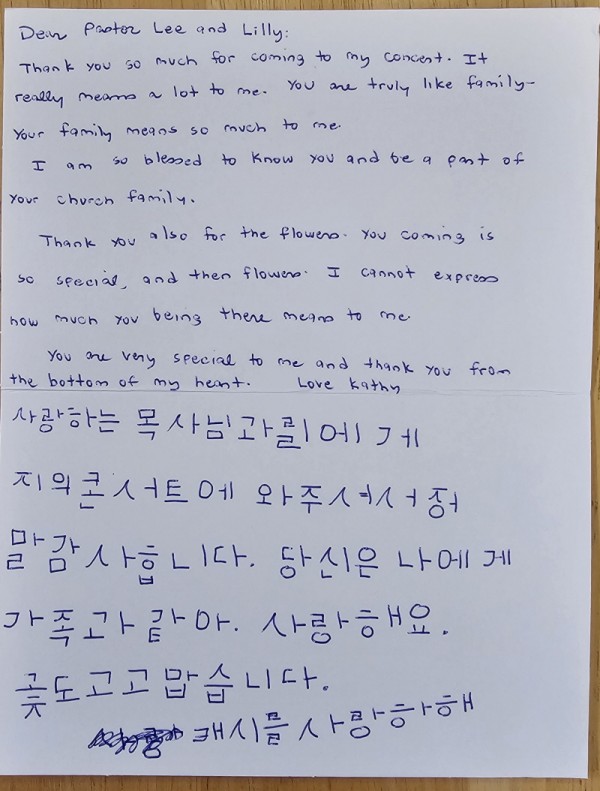 Dear Pastor Lee and Lilly:
Thank you so much for coming to my concert. It
really means a lot to me. You are truly like family-
Your family means so much to me.
I am so blessed to know you and be a part of
your church family.
Thank you also for the flowers. You coming is
so special, and then flowers. I cannot express
how much you being there means to me.
You are very special to me and thank you from
the bottom of my heart. Love Kathy
사랑하는 목사님과릴에게
지의콘서트에 와주셔서정
말감사합니다. 당신은 나에게
가족과 같아. 사랑해요.
꽃도고고맙습니다.
캐시를 사랑하해